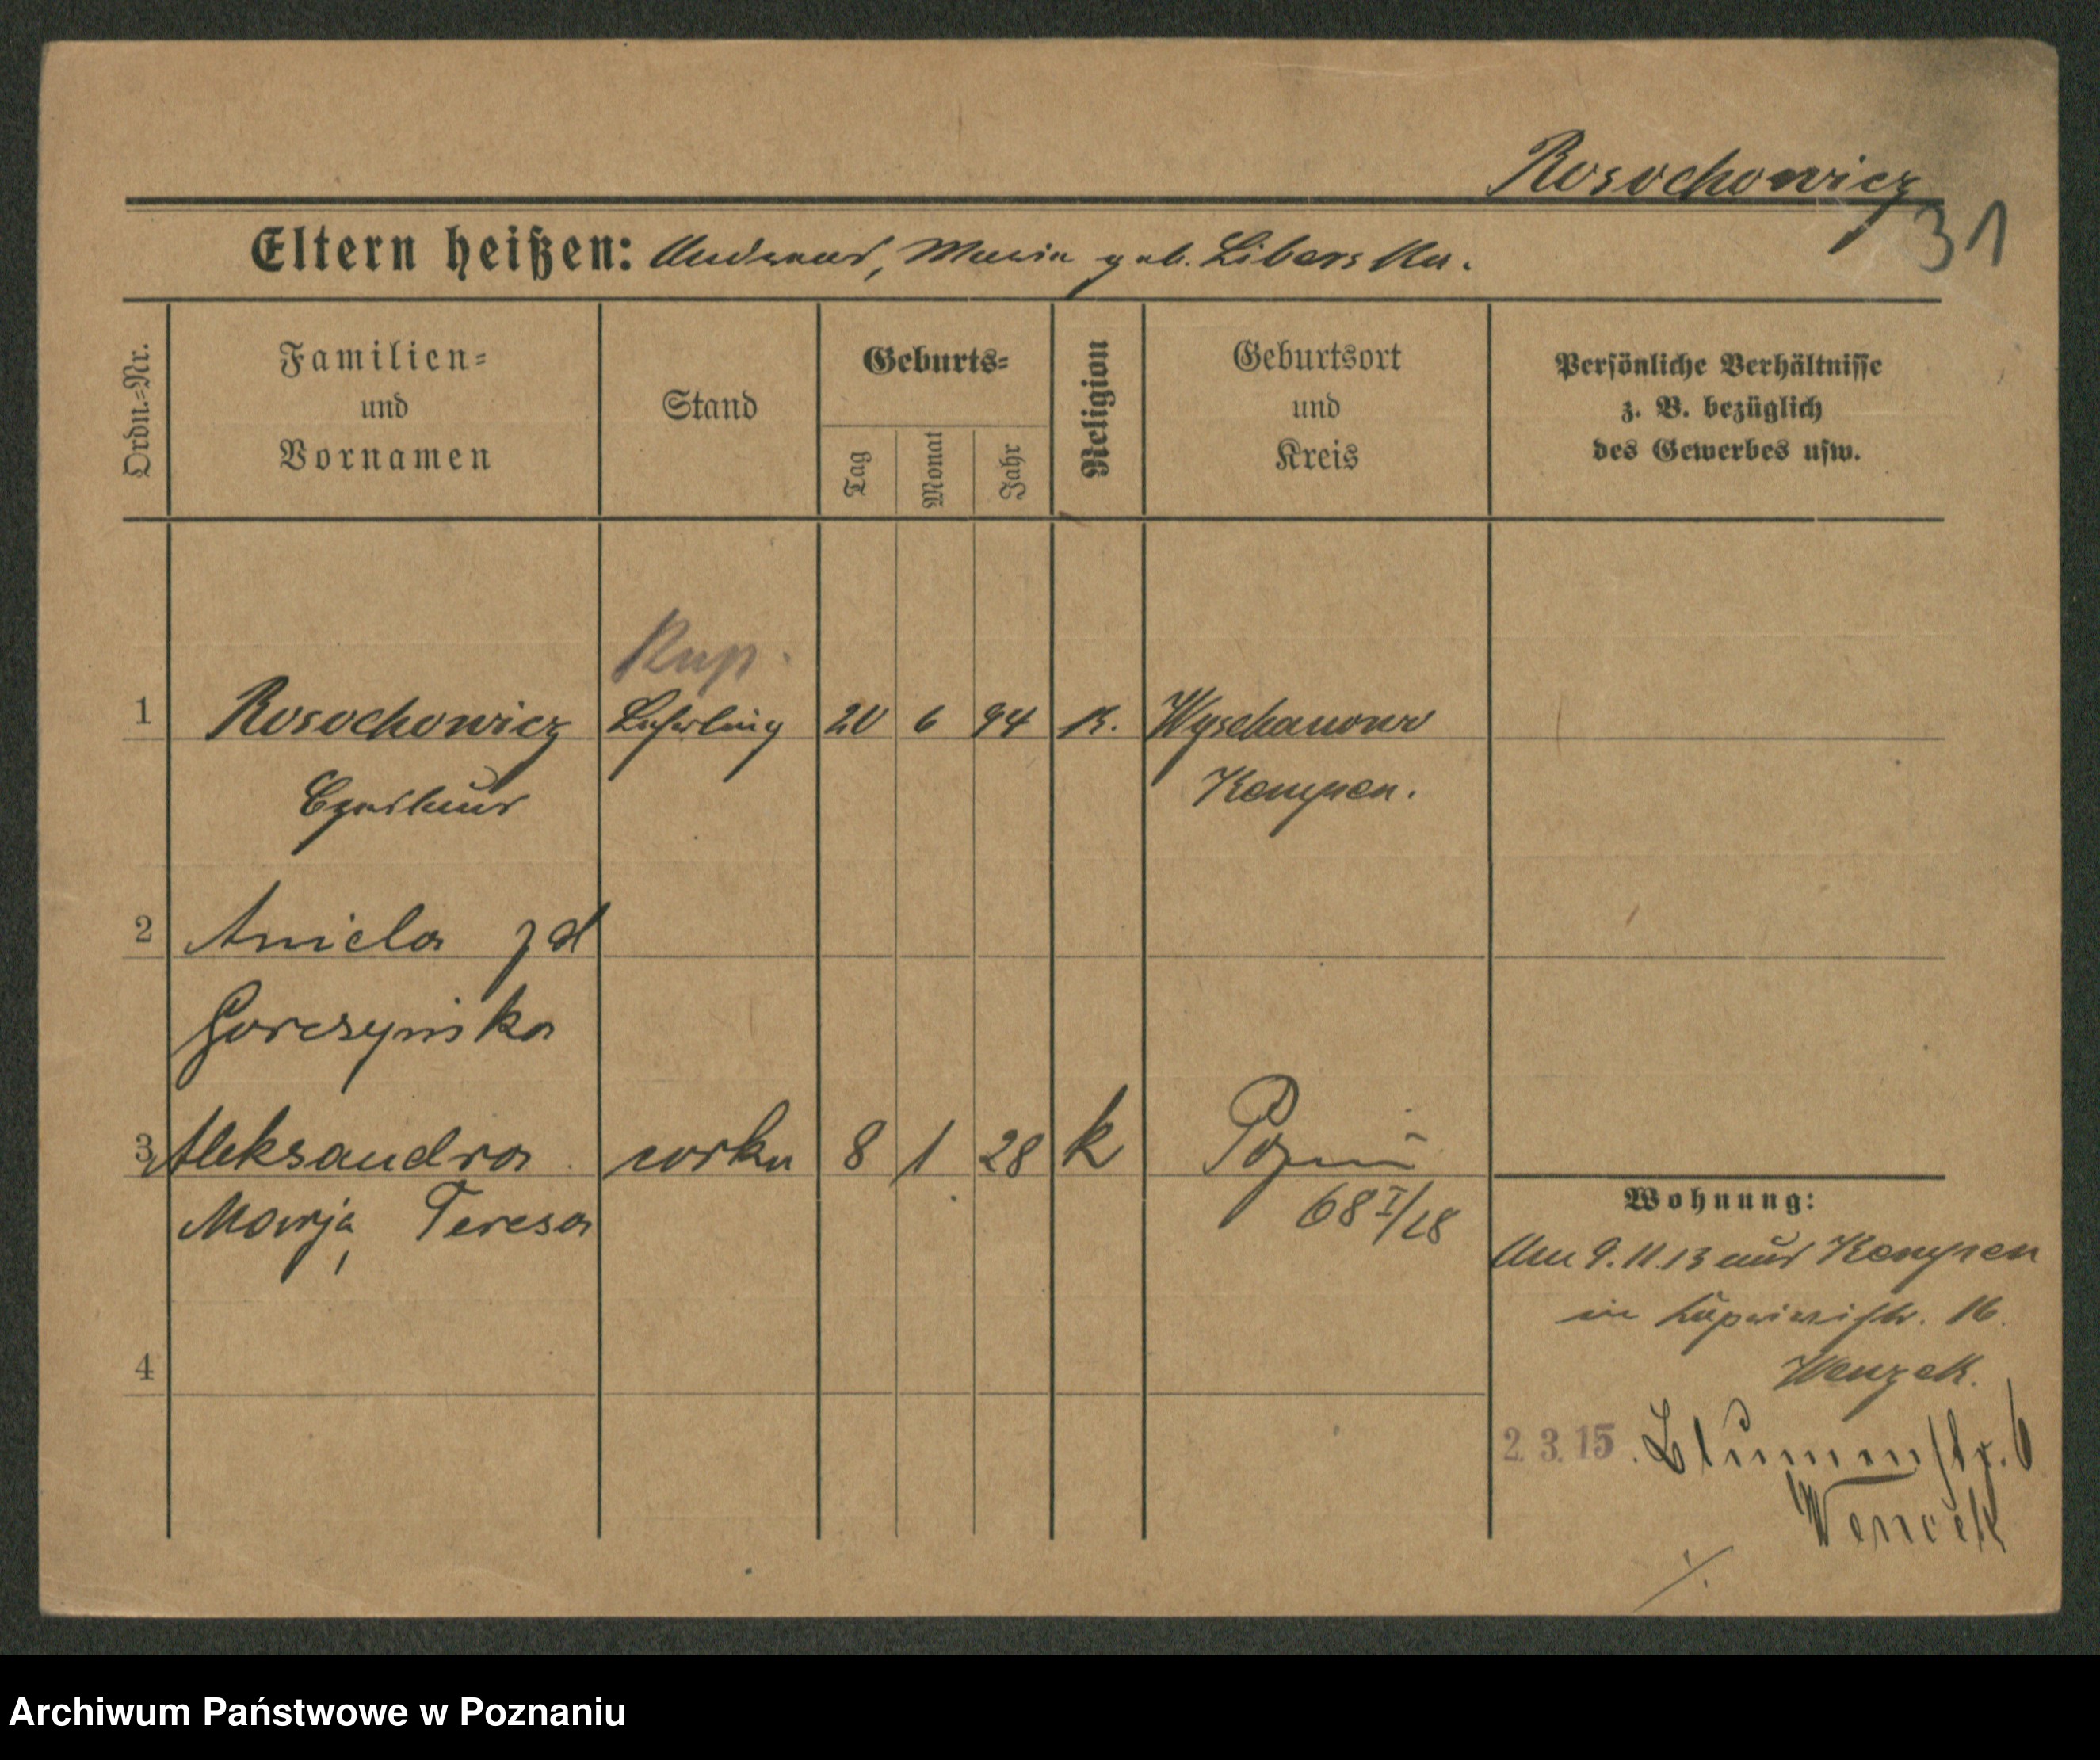 Rosochowicz
31
Eltern heißen: Andreas, Maria geb. Liberska.
Ordn.=Nr.
Familien=
und
Vornamen
Stand
Geburts=
Tag
Monat
Jahr
Religion
Geburtsort
und
Kreis
Persönliche Verhältnisse
z. B. bezüglich
des Gewerbes usw.
Kup.
1 Rosochowicz Lehrling 20 6 94 K.
Kempen.
2 Aniela zd
Gorczynska
3 Aleksandra corka 8 1 28 k Poznań
Marja, Teresa 68 I/28
Wohnung:
Am 9.11.13 aus Kempen
in 16.
Wenzek.
4
2.3.15. Blumenstr. 6
Wencek
Archiwum Państwowe w Poznaniu